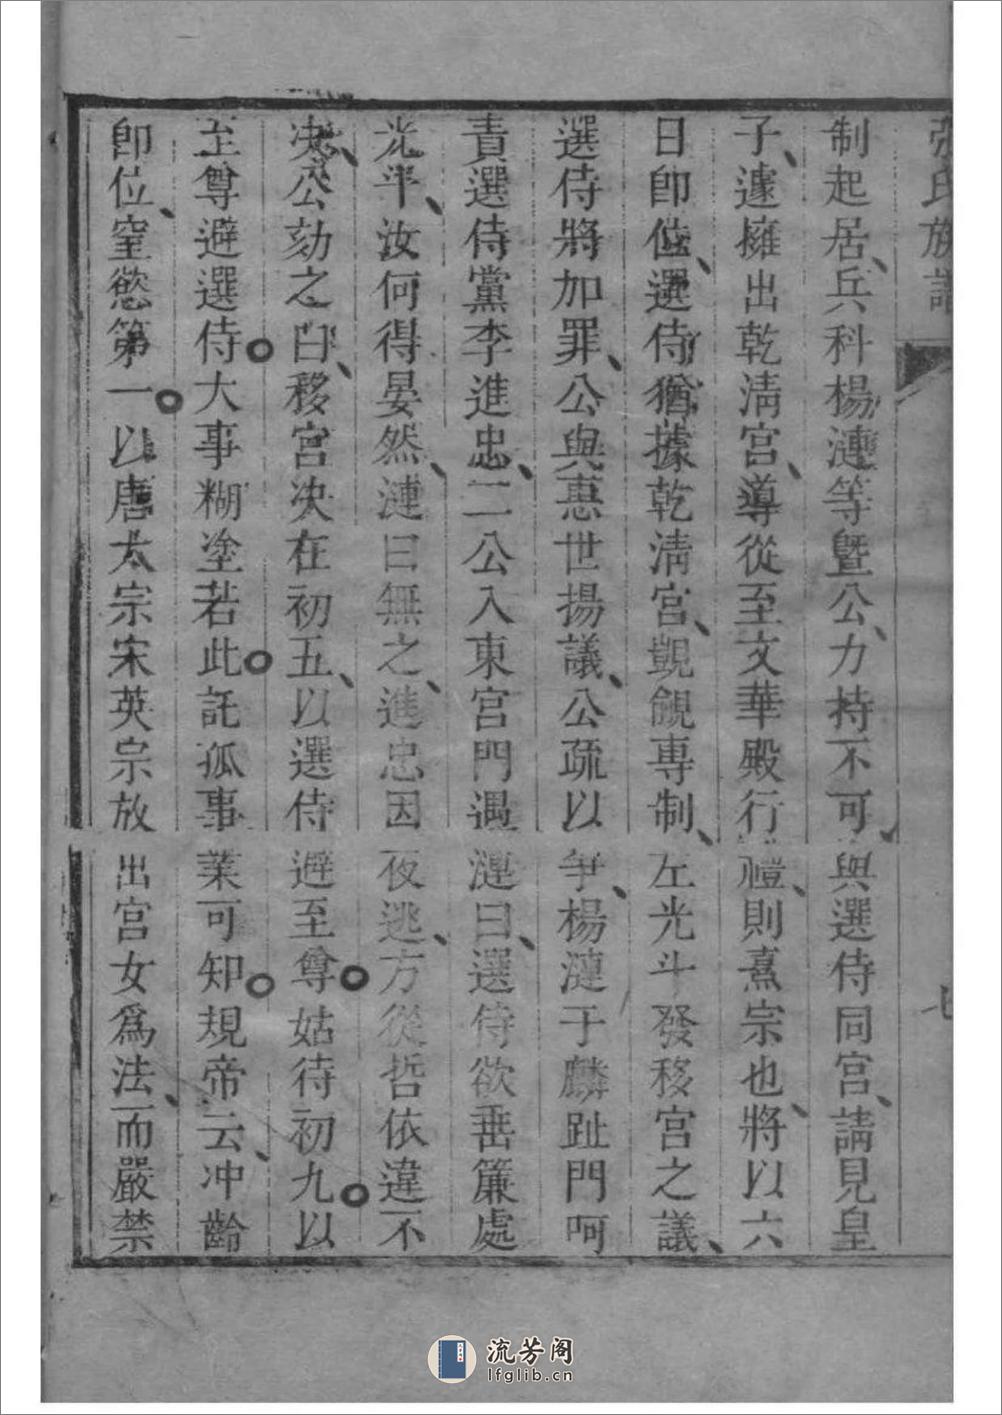 張氏族譜
七
制起居兵科楊漣等曁公力持不可與選侍同宮請見皇
子遽擁出乾淸宮導從至文華殿行禮則熹宗也將以六
日卽位選侍猶據乾淸宮覬覦専制左光斗發移宮之議
選侍將加罪公與惠世揚議公疏以爭楊漣于麟趾門呵
責選侍黨李進忠二公入東宮門遇漣曰選侍欲垂簾處
光斗汝何得晏然漣曰無之進忠因夜逃方從哲依違不
决公劾之曰移宮决在初五以選侍避至尊姑待初九以
至尊避選侍大事糊塗若此託孤事業可知規帝云冲齡
卽位窒慾第一以唐太宗宋英宗放出宮女爲法而嚴禁
流芳阁
lfglib.cn